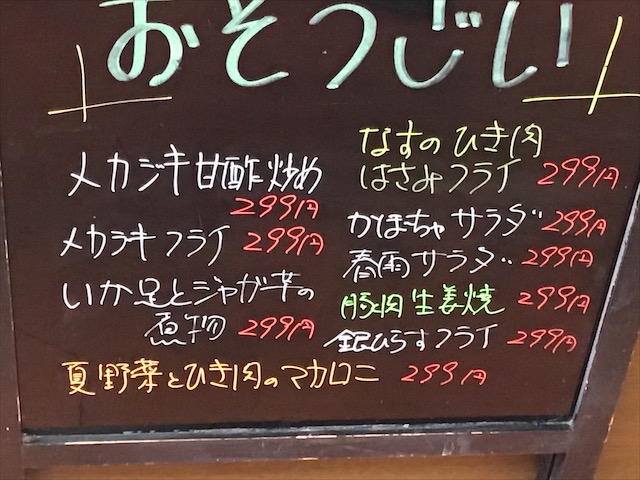 おそうじい
メカジキ甘酢炒め
299円
メカジキフライ 299円
いか足とジャガ芋の
煮物 299円
なすのひき肉
はさみフライ 299円
かぼちゃサラダ 299円
春雨サラダ 299円
豚肉生姜焼 299円
銀ひらすフライ 299円
夏野菜とひき肉のマカロニ 299円